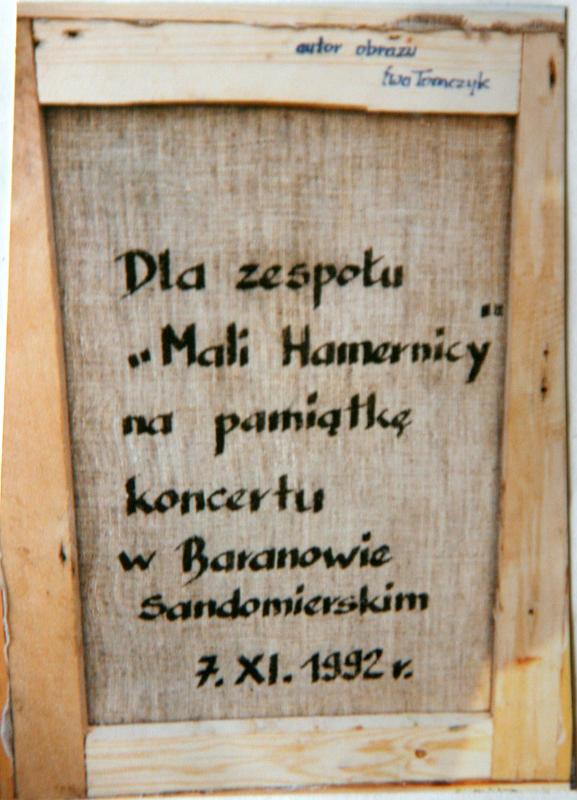 autor obrazu
Ewa Tomczyk
Dla zespołu
„Mali Hamernicy"
na pamiątkę
koncertu
w Baranowie
Sandomierskim
7. XI. 1992 r.